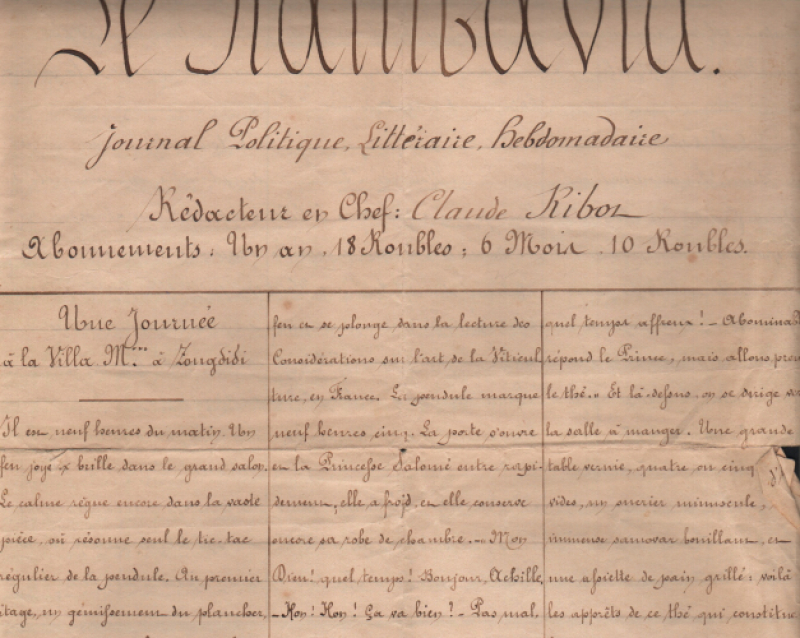 Le
Journal Politique, Littéraire, Hebdomadaire
Rédacteur en Chef: Claude Ribot
Abonnements: Un an, 18 Roubles; 6 Mois, 10 Roubles.
Une Journée
à la Villa M.... à Zougdidi
Il est neuf heures du matin. Un
feu joyeux brille dans le grand salon.
Le calme règne encore dans la vaste
pièce, où résonne seul le tic-tac
régulier de la pendule. Au premier
étage, un gémissement du plancher,
feu et se plonge dans la lecture des
Considérations sur l'art de la Viticul
ture, en France. La pendule marque
neuf heures cinq. La porte s'ouvre
et la Princesse Salomé entre rapi-
dement, elle a froid, et elle conserve
encore sa robe de chambre. - Mon
Dieu! quel temps! Bonjour, Achille,
- Hon! Hon! Ça va bien? - Pas mal,
quel temps affreux! - Abominab
répond le Prince, mais allons pren
le thé." Et là-dessus on se dirige ver
la salle à manger. Une grande
table vernie, quatre ou cinq
vides, un encrier minuscule,
immense samovar bouillant, et
une assiette de pain grillé: voilà
les apprêts de ce thé qui constitue
d'